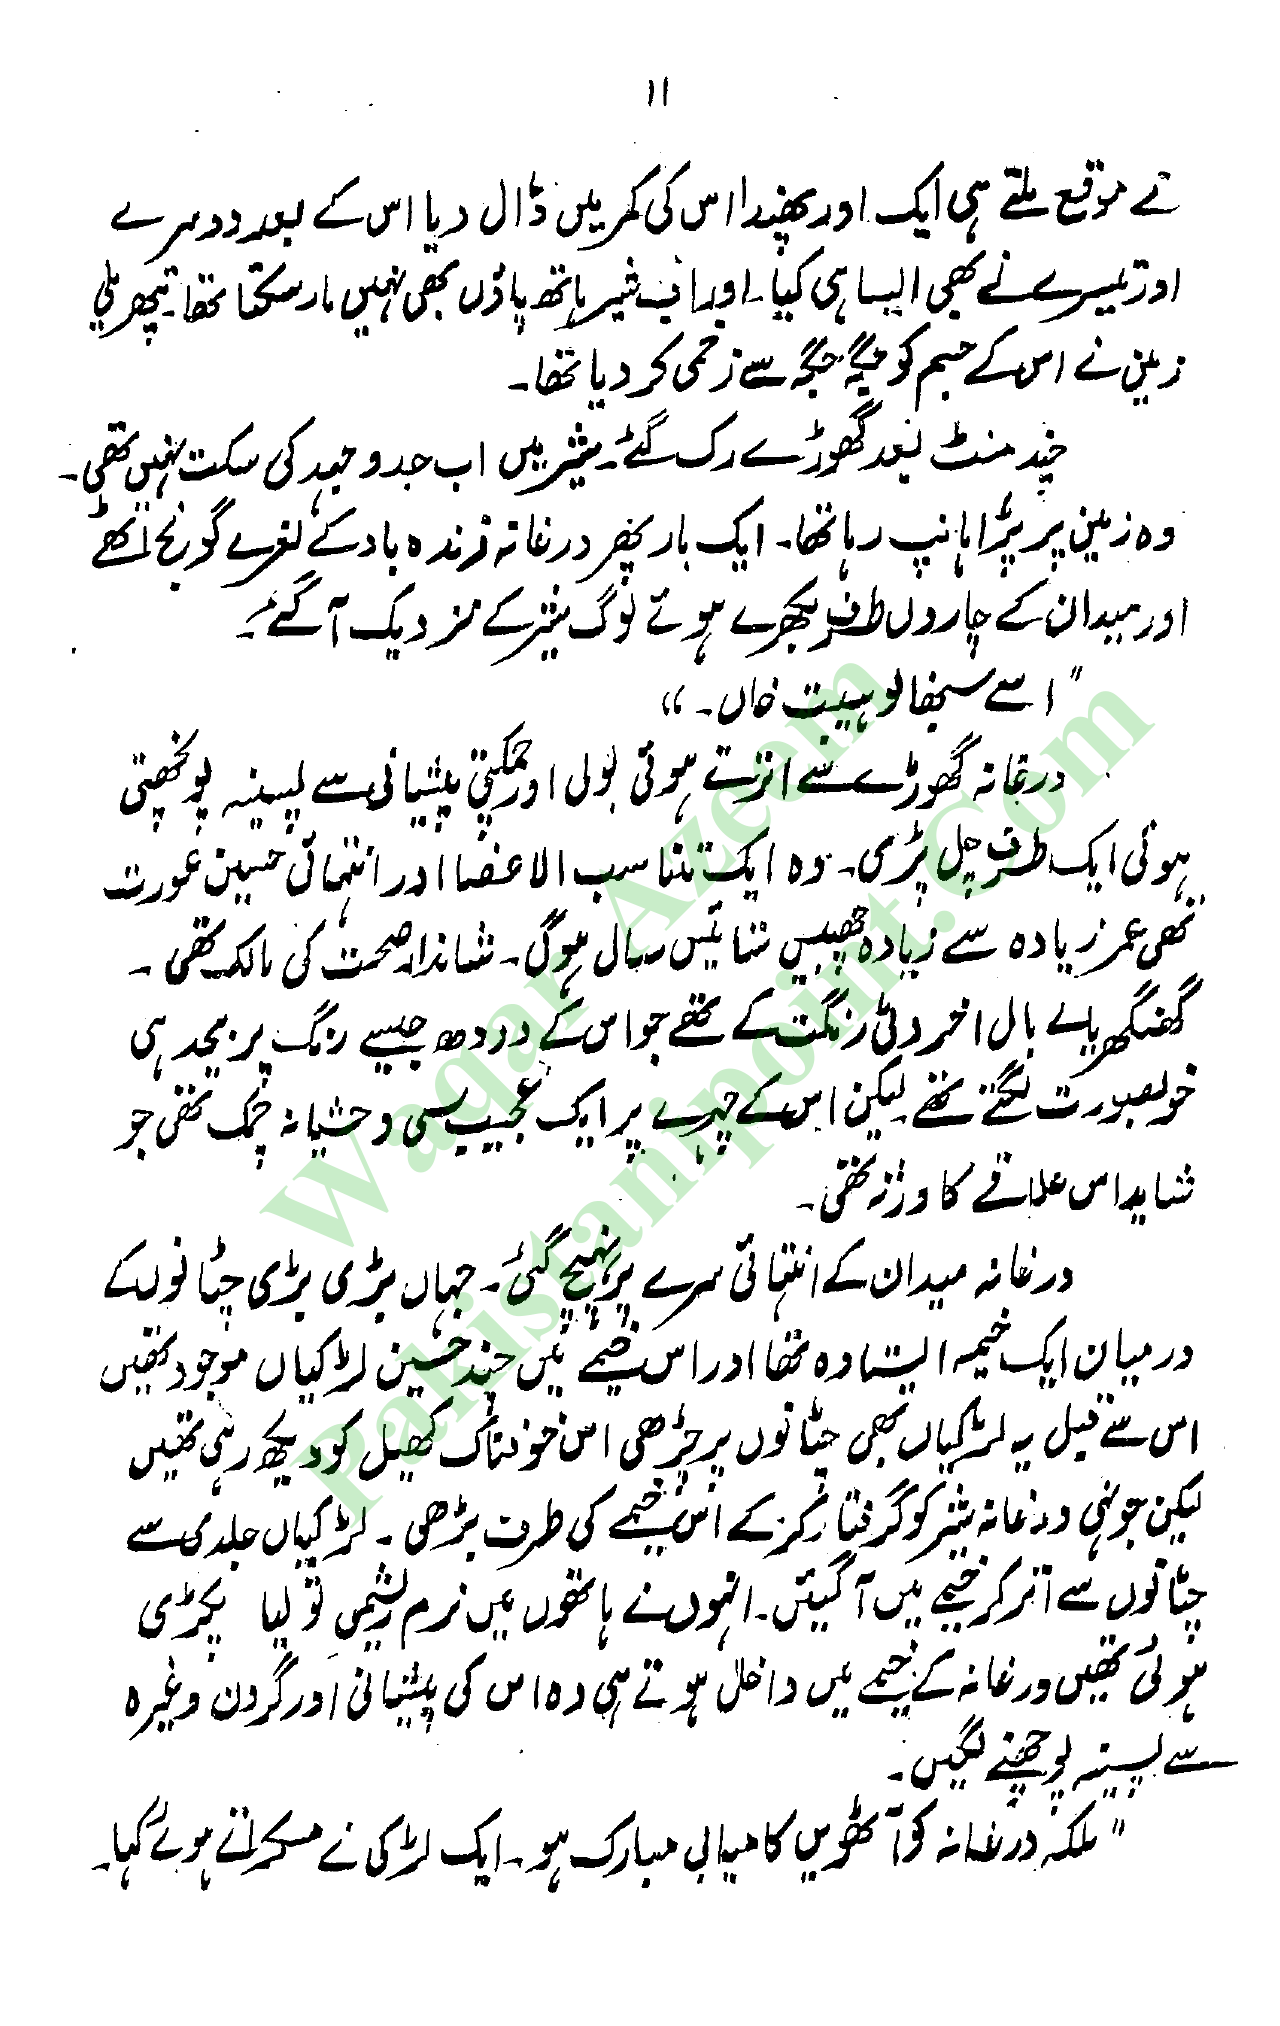 ۱۱
نے موقع ملتے ہی ایک اور پھندا اس کی کمر میں ڈال دیا اس کے بعد دوسرے
اور تیسرے نے بھی ایسا ہی کیا۔ اور اب شیر ہاتھ پاؤں بھی نہیں مار سکتا تھا۔ پتھریلی
زمین نے اس کے جسم کو جگہ جگہ سے زخمی کر دیا تھا۔
چند منٹ بعد گھوڑے رک گئے۔ شیر میں اب جدوجہد کی سکت نہیں تھی۔
وہ زمین پر پڑا ہانپ رہا تھا۔ ایک بار پھر درغانہ زندہ باد کے نعرے گونج اٹھے
اور میدان کے چاروں طرف بکھرے ہوئے لوگ شیر کے نزدیک آ گئے۔
"اسے سنبھالو ہیبت خاں۔"
درغانہ گھوڑے سے اترتے ہوئی بولی اور چمکتی پیشانی سے پسینہ پونچھتی
ہوئی ایک طرف چل پڑی۔ وہ ایک متناسب الاعضا اور انتہائی حسین عورت
تھی عمر زیادہ سے زیادہ چھبیس ستائیس سال ہوگی۔ شاندار صحت کی مالک تھی۔
گھنگھریالے بال اخروٹی رنگت کے تھے جو اس کے دودھ جیسے رنگ پر بیحد ہی
خوبصورت لگتے تھے۔ لیکن اس کے چہرے پر ایک عجیب سی وحشیانہ چمک تھی جو
شاید اس علاقے کا ورثہ تھی۔
درغانہ میدان کے انتہائی سرے پر پہنچ گئی۔ جہاں بڑی بڑی چٹانوں کے
درمیان ایک خیمہ ایستادہ تھا اور اس خیمے میں چند حسین لڑکیاں موجود تھیں
اس سے قبل یہ لڑکیاں بھی چٹانوں پر چڑھی اس خوفناک کھیل کو دیکھ رہی تھیں
لیکن جونہی درغانہ شیر کو گرفتار کر کے اس خیمے کی طرف بڑھی۔ لڑکیاں جلدی سے
چٹانوں سے اتر کر خیمے میں آ گئیں۔ انہوں نے ہاتھوں میں نرم ریشمی تولیا پکڑی
ہوئی تھیں درغانہ کے خیمے میں داخل ہوتے ہی وہ اس کی پیشانی اور گردن وغیرہ
سے پسینہ پوچھنے لگیں۔
"ملکہ درغانہ کو آٹھویں کامیابی مبارک ہو۔ ایک لڑکی نے مسکراتے ہوئے کہا۔
Waqar Azeem
Pakistanipoint.Com